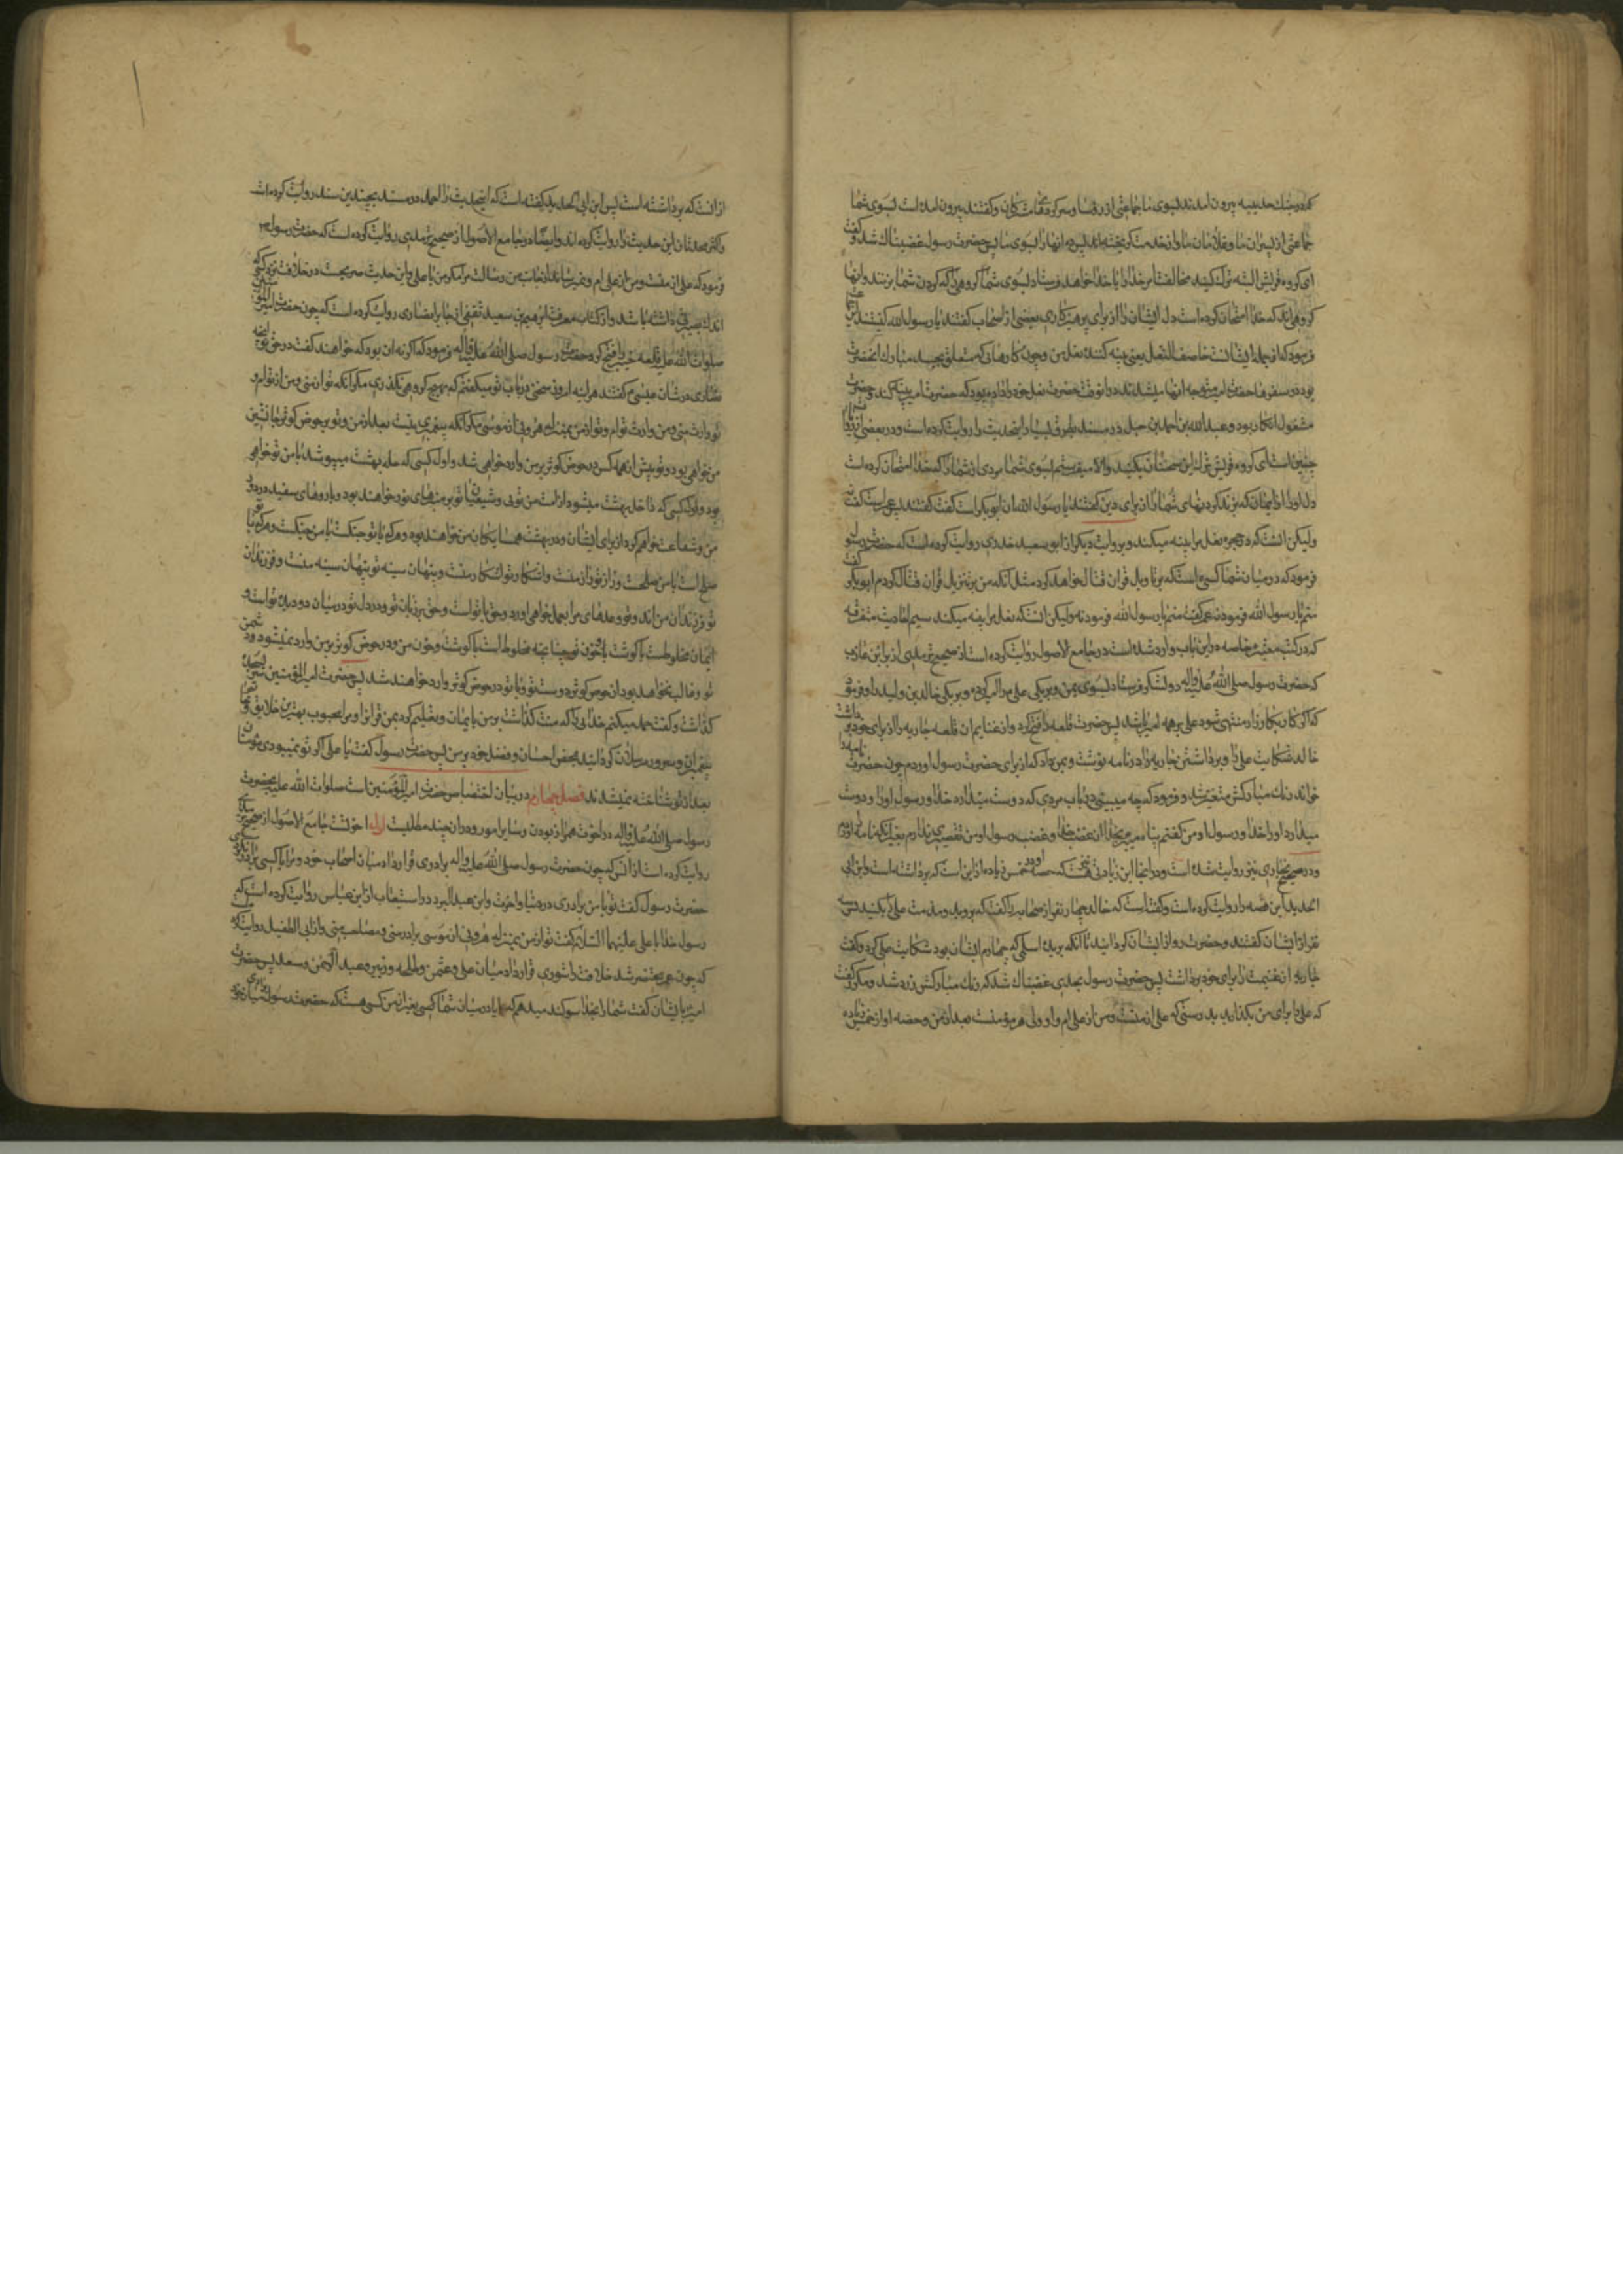 که در جنك حدیبیه بیرون آمدند بسوی ما جماعتی از رؤسا و سرکرده‌های مشرکان و کفتند بیرون امده است بسوی شما
جماعتی از پسران ما و غلامان ما و از خدمت کریخته‌اند پس ده انها را بسوی ما پس حضرت رسول غضبناك شد و کفت
ای کروه قریش البته ترك کنید مخالفت امر خدا را یا خدا خواهد فرستاد بسوی شما کروهی را که کردن شما بزنند و انها
کروهی‌اند که خدا امتحان کرده است دل ایشان را از برای پرهیزکاری بعضی از اصحاب کفتند یا رسول الله کیستند اینها
فرمود که از جمله ایشانست خاصف النعل یعنی پینه کننده نعل من و چون کارهائی که متعلق بجسد مبارك انحضرت
بود در سفرها حضرت امیر متوجه انها میشدند در انوقت حضرت نعل خود را داده بود که حضرت امیر پینه کند و حضرت
مشغول انکار بود و عبد الله بن احمد بن حنبل در مسند بطرق بسیار اینحدیث را روایت کرده است و در بعضی از روایات
چنین است ای کروه قریش ترك این سخنان بکنید و الا میفرستم بسوی شما مردی از شما را که خدا امتحان کرده است
دل او را از ایمان که بزند کردنهای شما را از برای دین کفتند یا رسول الله ان ابو بکر است کفت نه کفتند پس عمر است کفت نه
ولیکن انست که در حجره نعل مرا پینه میکند و بروایت دیکر از ابو سعید خدری روایت کرده است که حضرت رسول
فرمود که در میان شما کسی است که بر تاویل قران قتال خواهد کرد مثل انکه من بر تنزیل قران قتال کردم ابو بکر کفت
منم یا رسول الله فرمود نه عمر کفت منم یا رسول الله فرمود نه ولیکن انست که نعل مرا پینه میکند سیم احادیث متفرقه
که در کتب معتبره خاصه در این باب وارد شده است در جامع الاصول روایت کرده است از صحیح ترمذی از براء بن عازب
که حضرت رسول صلی الله علیه و اله دو لشکر فرستاد بسوی یمن و بر یکی علی را امیر کرد و بر یکی خالد بن ولید را و فرمود
که اکر کار بکارزار منتهی شود علی بر همه امیر باشد پس حضرت قلعه را فتح کرد و از غنایم ان قلعه جاریه را از برای خود برداشت
خالد شکایت علی را و برداشتن جاریه را در نامه نوشت و بمن داد که از برای حضرت رسول اوردم چون حضرت نامه را
خواند رنك مبارکش متغیر شد و فرمود که چه میبینی در باب مردی که دوست میدارد خدا و رسول او را و دوست
میدارد او را خدا و رسول او من کفتم پناه میبرم بخدا از غضب خدا و غضب رسول او من تقصیری ندارم بغیر انکه نامه را اوردم
و در صحیح بخاری نیز روایت شده است و در انجا این زیادتی هست که حصه او در خمس زیاده از این است که برداشته است و ابن ابی
الحدید این قصه را روایت کرده است و کفته است که خالد چهار نفر از صحابه را کفت که بروید و مذمت علی را بکنید پس سه
نفر از ایشان کفتند و حضرت رو از ایشان کردانید تا انکه بریده اسلمی که چهارم ایشان بود شکایت علی کرد و کفت
جاریه از غنیمت را برای خود برداشت پس حضرت رسول بحدی غضبناك شد که رنك مبارکش زرد شد و مکرر کفت
که علی را برای من بکذارید بدرستی که علی از منست و من از علی ام و او ولی هر مؤمنست بعد از من و حصه او از خمس زیاده
از انست که برداشته است پس ابن ابی الحدید کفته است که اینحدیث را احمد در مسند بچندین سند روایت کرده است
و اکثر محدثان این حدیث را روایت کرده اند و ایضا در جامع الاصول از صحیح ترمذی روایت کرده است که حضرت رسول ص
فرمود که علی از منست و من از علی ام و نمیرساند از جانب من رسالت مرا مکر من یا علی و این حدیث صریحست در خلافت نزد کسی که
اندك بصیرتی داشته باشد و از کتاب معرفت ابراهیم بن سعید ثقفی از جابر انصاری روایت کرده است که چون حضرت امیر المؤمنین
صلوات الله علیه قلعه خیبر را فتح کرد حضرت رسول صلی الله علیه و اله فرمود که اکر نه ان بود که خواهند کفت در حق تو انچه
نصاری در شان عیسی ع کفتند هر اینه امروز سخنی در باب تو میکفتم که بهیچ کروهی نکذری مکر انکه تو از منی و من از توام و
تو وارث منی و من وارث توام و تو از من بمنزله هرونی از موسی مکر انکه پیغمبری نیست بعد از من و تو بر حوض کوثر جانشین
من خواهی بود و تو پیش از همه کس در حوض کوثر بر من وارد خواهی شد و اول کسی که حله بهشت میپوشد با من تو خواهی
بود و اول کسی که داخل بهشت میشود از امت من توئی و شیعیان تو بر منبرهای نور خواهند بود و با روهای سفید در دور
من و شفاعت خواهم کرد از برای ایشان و در بهشت همسایکان من خواهند بود و هر که با تو جنکست با من جنکست و هر که با تو
صلح است با من صلحست و راز تو راز منست و اشکار تو اشکار منست و پنهان سینه تو پنهان سینه منست و فرزندان
تو فرزندان من‌اند و تو وعدهای مرا بعمل خواهی اورد و حق با تو است و حق بر زبان تو و در دل تو و در میان دو دیده تو است و
ایمان مخلوطست با کوشت و خون تو چنانچه مخلوط است با کوشت و خون من و در حوض کوثر بر من وارد نمیشود دشمن
تو و غالب نخواهد بود از حوض کوثر دوست تو و با تو در حوض کوثر وارد خواهند شد پس حضرت امیر المؤمنین سر بسجده
کذاشت و کفت حمد میکنم خدائی را که منت کذاشت بر من بایمان و تعلیم کرد بمن قرانرا و مرا محبوب بهترین خلایق خود
پیغمبران و سرور مرسلان کردانید بمحض احسان و فضل خود بر من پس حضرت رسول کفت یا علی اکر تو نمیبودی مؤمنان
بعد از تو شناخته نمیشدند فصل چهارم در بیان اختصاص حضرت امیر المؤمنین است صلوات الله علیه بحضرت
رسول صلی الله علیه و اله در اخوت همراز بودن و سایر امور و در ان چند مطلبست اول اخوتست جامع الاصول از صحیح ترمذی
روایت کرده است از انس که چون حضرت رسول صلی الله علیه و اله برادری قرار داد میان اصحاب خود و مرا با کسی برادر نکردی
حضرت رسول کفت تو با من برادری در دنیا و اخرت و ابن عبد البر در استیعاب از ابن عباس روایت کرده است که
رسول خدا با علی علیهما السلام کفت تو از من بمنزله هرونی از موسی برادر منی و مصاحب منی و از ابی الطفیل روایت کرده
که چون عمر محتضر شد خلافت را شوری قرار داد میان علی و عثمن و طلحه و زبیر و عبد الرحمن و سعد پس حضرت
امیر با ایشان کفت شما را بخدا سوکند میدهم که ایا در میان شما کسی بغیر از من کسی هست که حضرت رسول میان خود